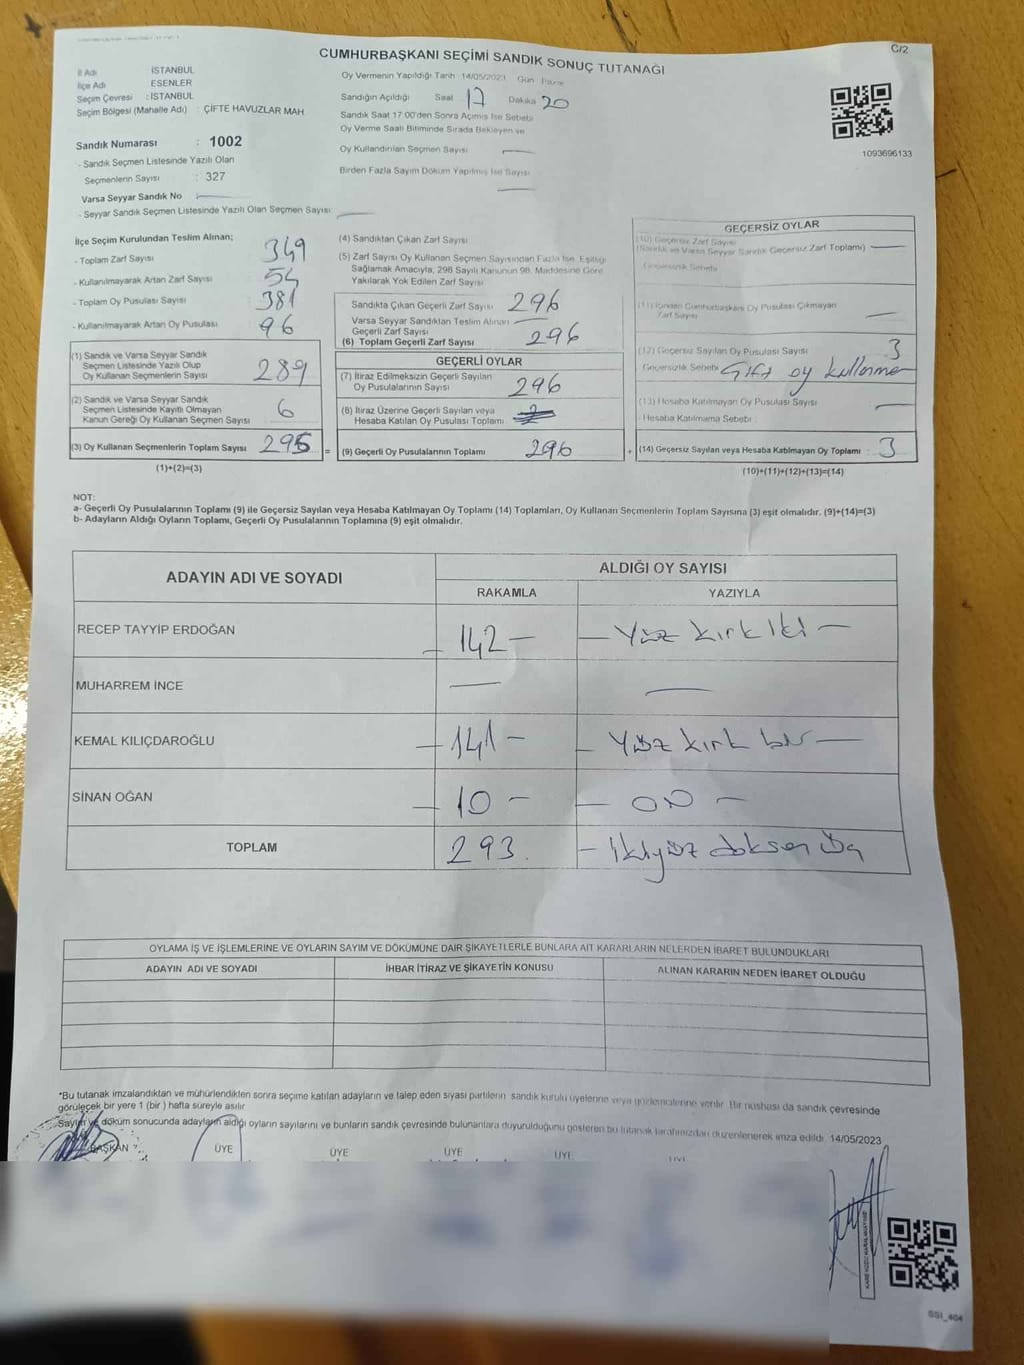 C/2
CUMHURBAŞKANI SEÇİMİ SANDIK SONUÇ TUTANAĞI
İl Adı İSTANBUL
İlçe Adı ESENLER
Seçim Çevresi : İSTANBUL
Seçim Bölgesi (Mahalle Adı) : ÇİFTE HAVUZLAR MAH
Sandık Numarası : 1002
- Sandık Seçmen Listesinde Yazılı Olan
Seçmenlerin Sayısı : 327
Varsa Seyyar Sandık No
- Seyyar Sandık Seçmen Listesinde Yazılı Olan Seçmen Sayısı
Oy Vermenin Yapıldığı Tarih 14/05/2023 Gün Pazar
Sandığın Açıldığı Saat 17 Dakika 20
Sandık Saat 17:00'den Sonra Açımış İse Sebebi
Oy Verme Saati Bitiminde Sırada Bekleyen ve
Oy Kullandırılan Seçmen Sayısı
Birden Fazla Sayım Döküm Yapılmış İse Sayısı
1093696133
İlçe Seçim Kurulundan Teslim Alınan;
- Toplam Zarf Sayısı 349
- Kullanılmayarak Artan Zarf Sayısı 54
- Toplam Oy Pusulası Sayısı 381
- Kullanılmayarak Artan Oy Pusulası 96
(1) Sandık ve Varsa Seyyar Sandık
Seçmen Listesinde Yazılı Olup
Oy Kullanan Seçmenlerin Sayısı 289
(2) Sandık ve Varsa Seyyar Sandık
Seçmen Listesinde Kayıtlı Olmayan
Kanun Gereği Oy Kullanan Seçmen Sayısı 6
(3) Oy Kullanan Seçmenlerin Toplam Sayısı 295 =
(1)+(2)=(3)
(4) Sandıktan Çıkan Zarf Sayısı
(5) Zarf Sayısı Oy Kullanan Seçmen Sayısından Fazla İse, Eşitliği
Sağlamak Amacıyla, 298 Sayılı Kanunun 98. Maddesine Göre
Yakılarak Yok Edilen Zarf Sayısı
Sandıkta Çıkan Geçerli Zarf Sayısı 296
Varsa Seyyar Sandıktan Teslim Alınan
Geçerli Zarf Sayısı
(6) Toplam Geçerli Zarf Sayısı 296
GEÇERLİ OYLAR
(7) İtiraz Edilmeksizin Geçerli Sayılan
Oy Pusulalarının Sayısı 296
(8) İtiraz Üzerine Geçerli Sayılan veya
Hesaba Katılan Oy Pusulası Toplamı
(9) Geçerli Oy Pusulalarının Toplamı 296 +
GEÇERSİZ OYLAR
(10) Geçersiz Zarf Sayısı
(Sandık ve Varsa Seyyar Sandık Geçersiz Zarf Toplamı)
Geçersizlik Sebebi
(11) İçinden Cumhurbaşkanı Oy Pusulası Çıkmayan
Zarf Sayısı
(12) Geçersiz Sayılan Oy Pusulası Sayısı 3
Geçersizlik Sebebi Çift oy kullanma
(13) Hesaba Katılmayan Oy Pusulası Sayısı
Hesaba Katılmama Sebebi
(14) Geçersiz Sayılan veya Hesaba Katılmayan Oy Toplamı : 3
(10)+(11)+(12)+(13)=(14)
NOT:
a- Geçerli Oy Pusulalarının Toplamı (9) ile Geçersiz Sayılan veya Hesaba Katılmayan Oy Toplamı (14) Toplamları, Oy Kullanan Seçmenlerin Toplam Sayısına (3) eşit olmalıdır. (9)+(14)=(3)
b- Adayların Aldığı Oyların Toplamı, Geçerli Oy Pusulalarının Toplamına (9) eşit olmalıdır.
ADAYIN ADI VE SOYADI
ALDIĞI OY SAYISI
RAKAMLA YAZIYLA
RECEP TAYYİP ERDOĞAN - 142 - - Yüz kırk iki -
MUHARREM İNCE - -
KEMAL KILIÇDAROĞLU - 141 - - Yüz kırk bir -
SİNAN OĞAN - 10 - - ON -
TOPLAM 293. - İkiyüz doksan üç
OYLAMA İŞ VE İŞLEMLERİNE VE OYLARIN SAYIM VE DÖKÜMÜNE DAİR ŞİKAYETLERLE BUNLARA AİT KARARLARIN NELERDEN İBARET BULUNDUKLARI
ADAYIN ADI VE SOYADI İHBAR İTİRAZ VE ŞİKAYETİN KONUSU ALINAN KARARIN NEDEN İBARET OLDUĞU
*Bu tutanak imzalandıktan ve mühürlendikten sonra seçime katılan adayların ve talep eden siyasi partilerin sandık kurulu üyelerine veya gözlemcilerine verilir. Bir nüshası da sandık çevresinde
görülecek bir yere 1 (bir) hafta süreyle asılır
Sayım ve döküm sonucunda adayların aldığı oyların sayılarını ve bunların sandık çevresinde bulunanlara duyurulduğunu gösteren bu tutanak tarafımızdan düzenlenerek imza edildi. 14/05/2023
BAŞKAN ÜYE ÜYE ÜYE ÜYE ÜYE
SSI_404